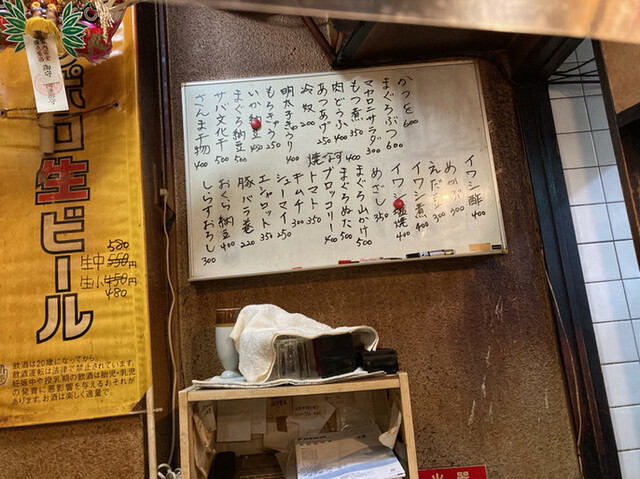 かつを 600
まぐろぶつ 600
マカロニサラダ 300
もつ煮 400
肉どうふ 350
あつあげ 250
冷奴 200
明太子きゅうり 400
もろきゅう 250
いか納豆 450
まぐろ納豆 500
サバ文化干 500
さんま干物 400
イワシ酢 400
めかぶ 300
えだ豆 300
イワシ煮 400
イワシ塩焼 400
めざし 350
まぐろ山かけ 500
まぐろぬた 500
ブロッコリー 400
焼なす 400
トマト 350
キムチ 300
シューマイ 250
エシャロット 350
豚バラ巻 220
おくら納豆 400
しらすおろし 300
生ビール
580
生中 550円
生小 450円
480
飲酒は20歳になってから。
飲酒運転は法律で禁止されています。
妊娠中や授乳期の飲酒は胎児・乳児
の発育に悪影響を与えるおそれが
あります。お酒は楽しく適量で。